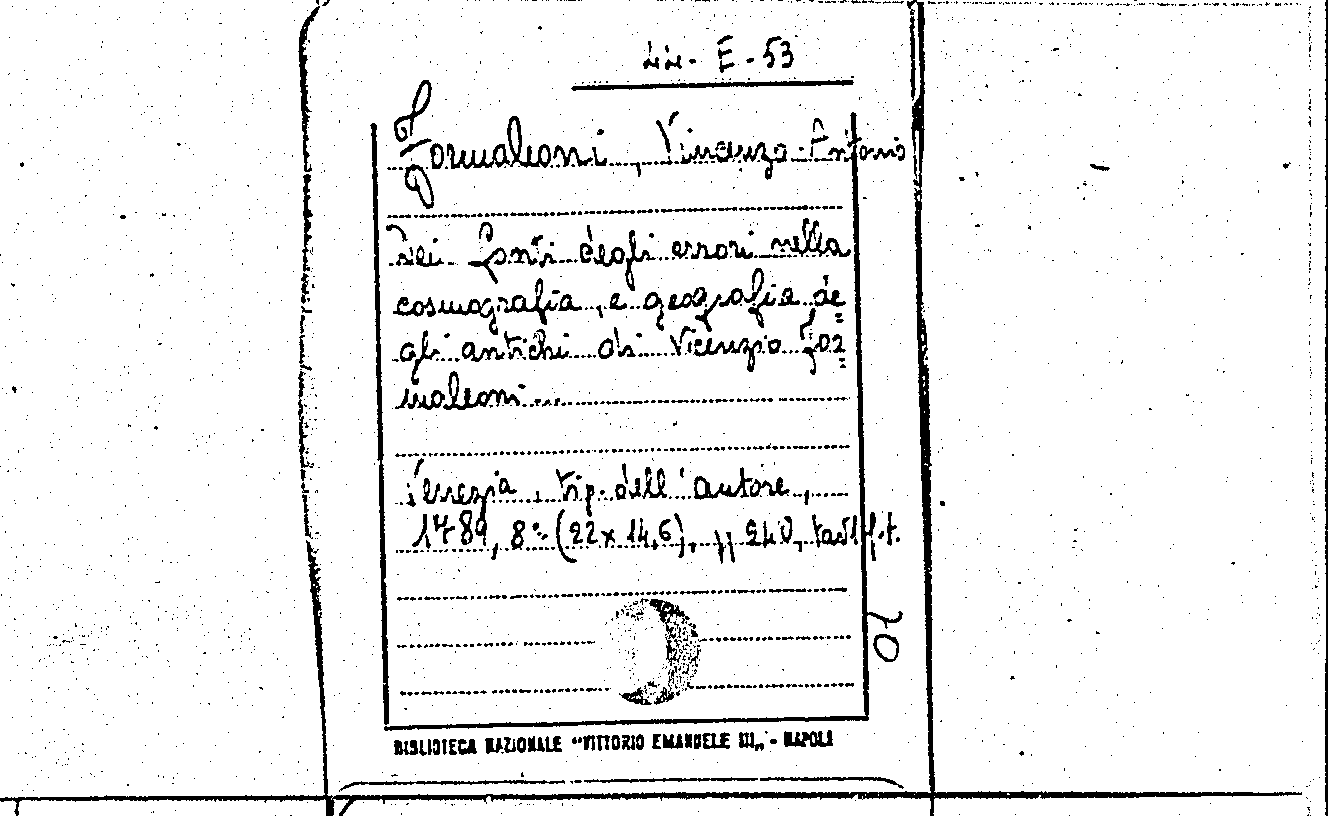 44. E. 53
Formaleoni, Vincenzo Antonio
Dei fonti degli errori nella
cosmografia, e geografia de=
gli antichi di Vicenzio For=
maleoni...
Venezia, tip. dell'autore,
1789, 8º (22x14,6), pp 240, tav 1 f.t.
70
BIBLIOTECA NAZIONALE "VITTORIO EMANUELE III„ - NAPOLI